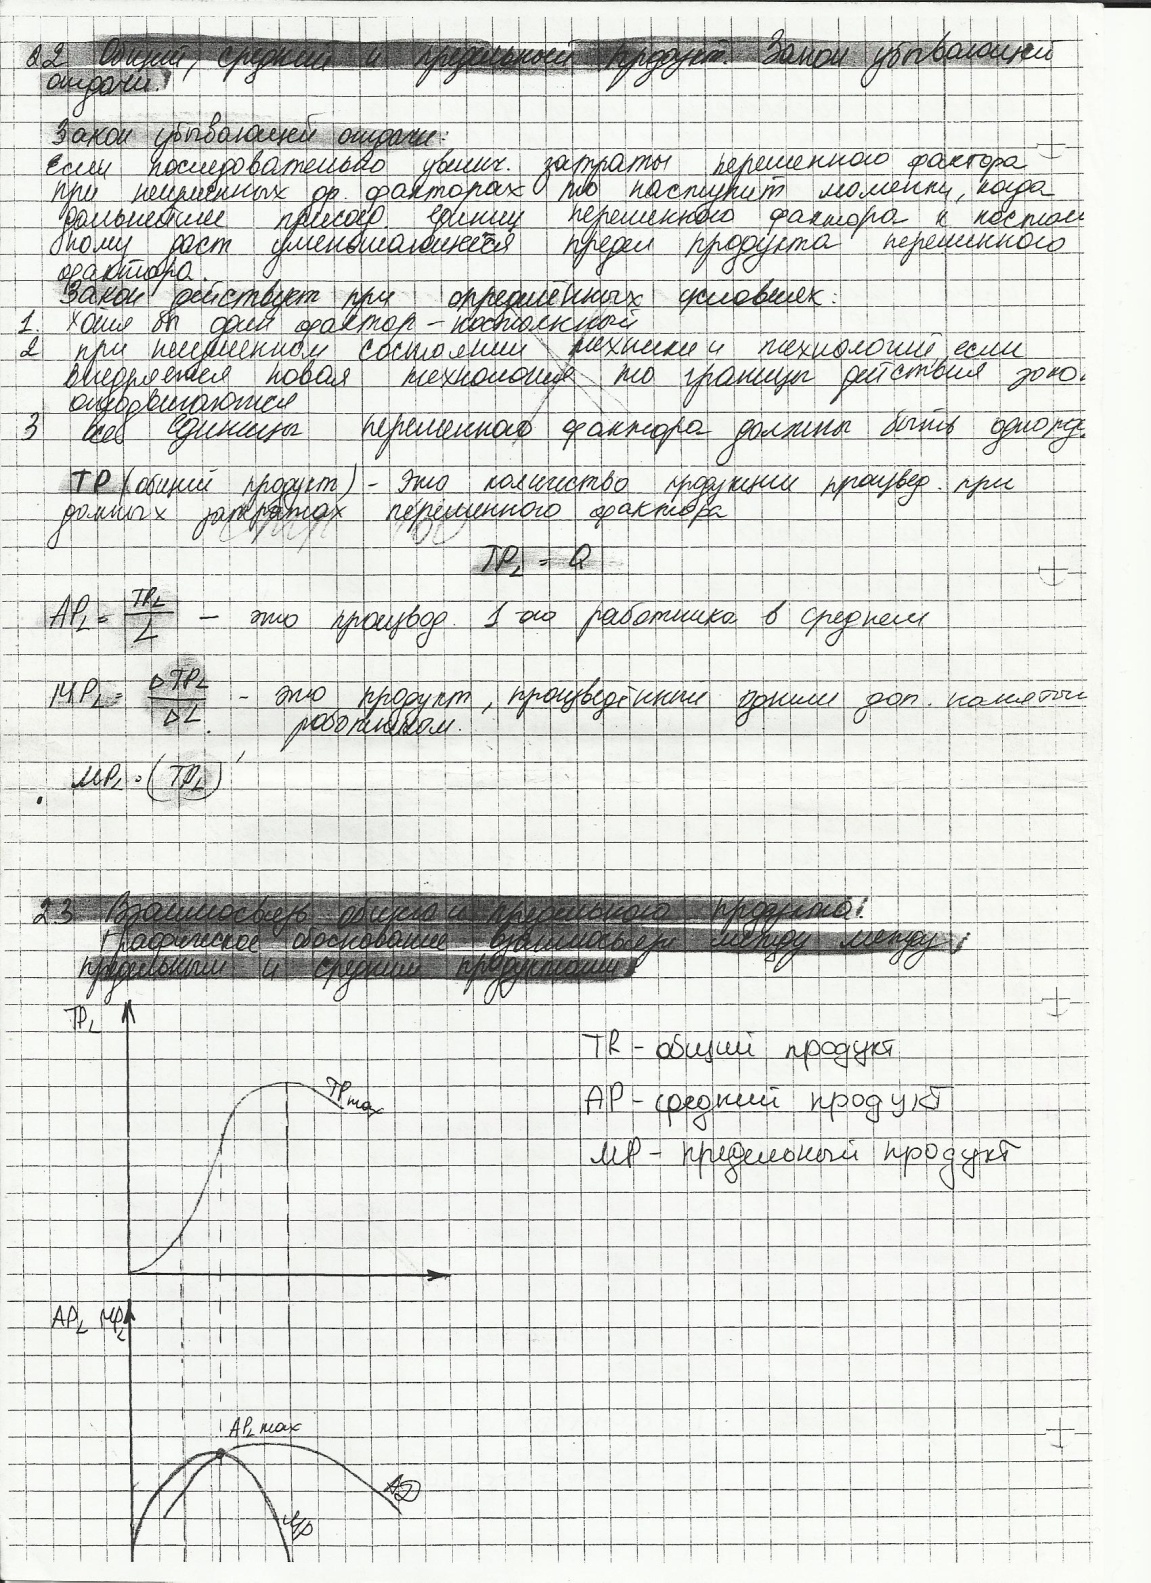 22 Общий, средний и предельный продукт. Закон убывающей
отдачи.
Закон убывающей отдачи:
Если последовательно увелич. затраты переменного фактора
при неизменных др. факторах то наступит момент, когда
дальнейшее присоед. единиц переменного фактора к постоян
ному даст уменьшающийся предел продукта переменного
фактора.
Закон действует при определённых условиях:
1. Хотя бы один фактор – постоянный
2 при неизменном состоянии техники и технологий, если
внедряется новая технология то границы действия зако.
отодвигаются
3 все единицы переменного фактора должны быть однород.
TP (общий продукт) – это количество продукции произвед. при
данных затратах переменного фактора
TP_L = Q
AP_L = TP_L / L – это производ. 1-го работника в среднем
MP_L = ΔTP_L / ΔL – это продукт, произведённый одним доп. нанятым
работником.
MP_L = (TP_L)'
23 Взаимосвязь общего и предельного продукта.
Графическое обоснование взаимосвязи между между
предельным и средним продуктами
TP_L
TP max
TR – общий продукт
AP – средний продукт
MP – предельный продукт
AP_L MP_L
AP_L max
AP
MP